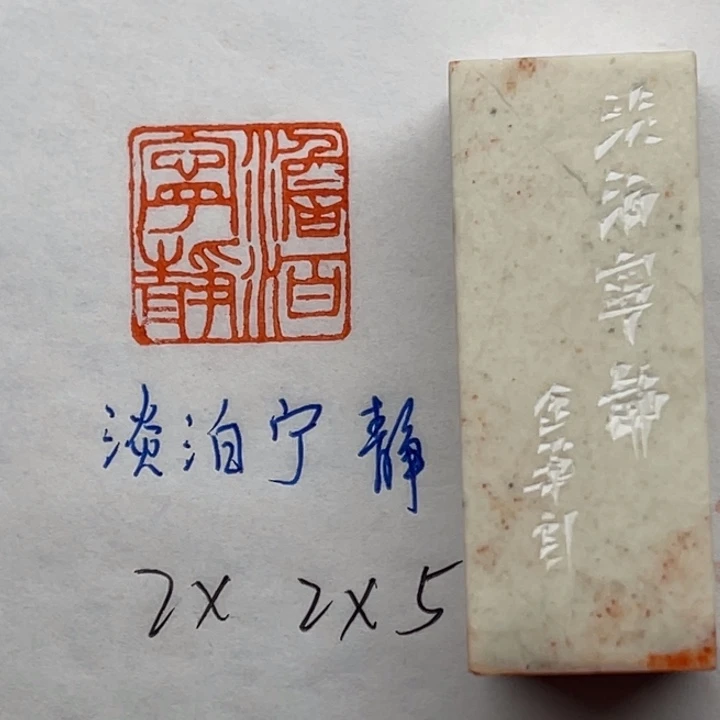 澹泊
寧靜
淡泊宁静
2x 2x5
淡泊寧靜